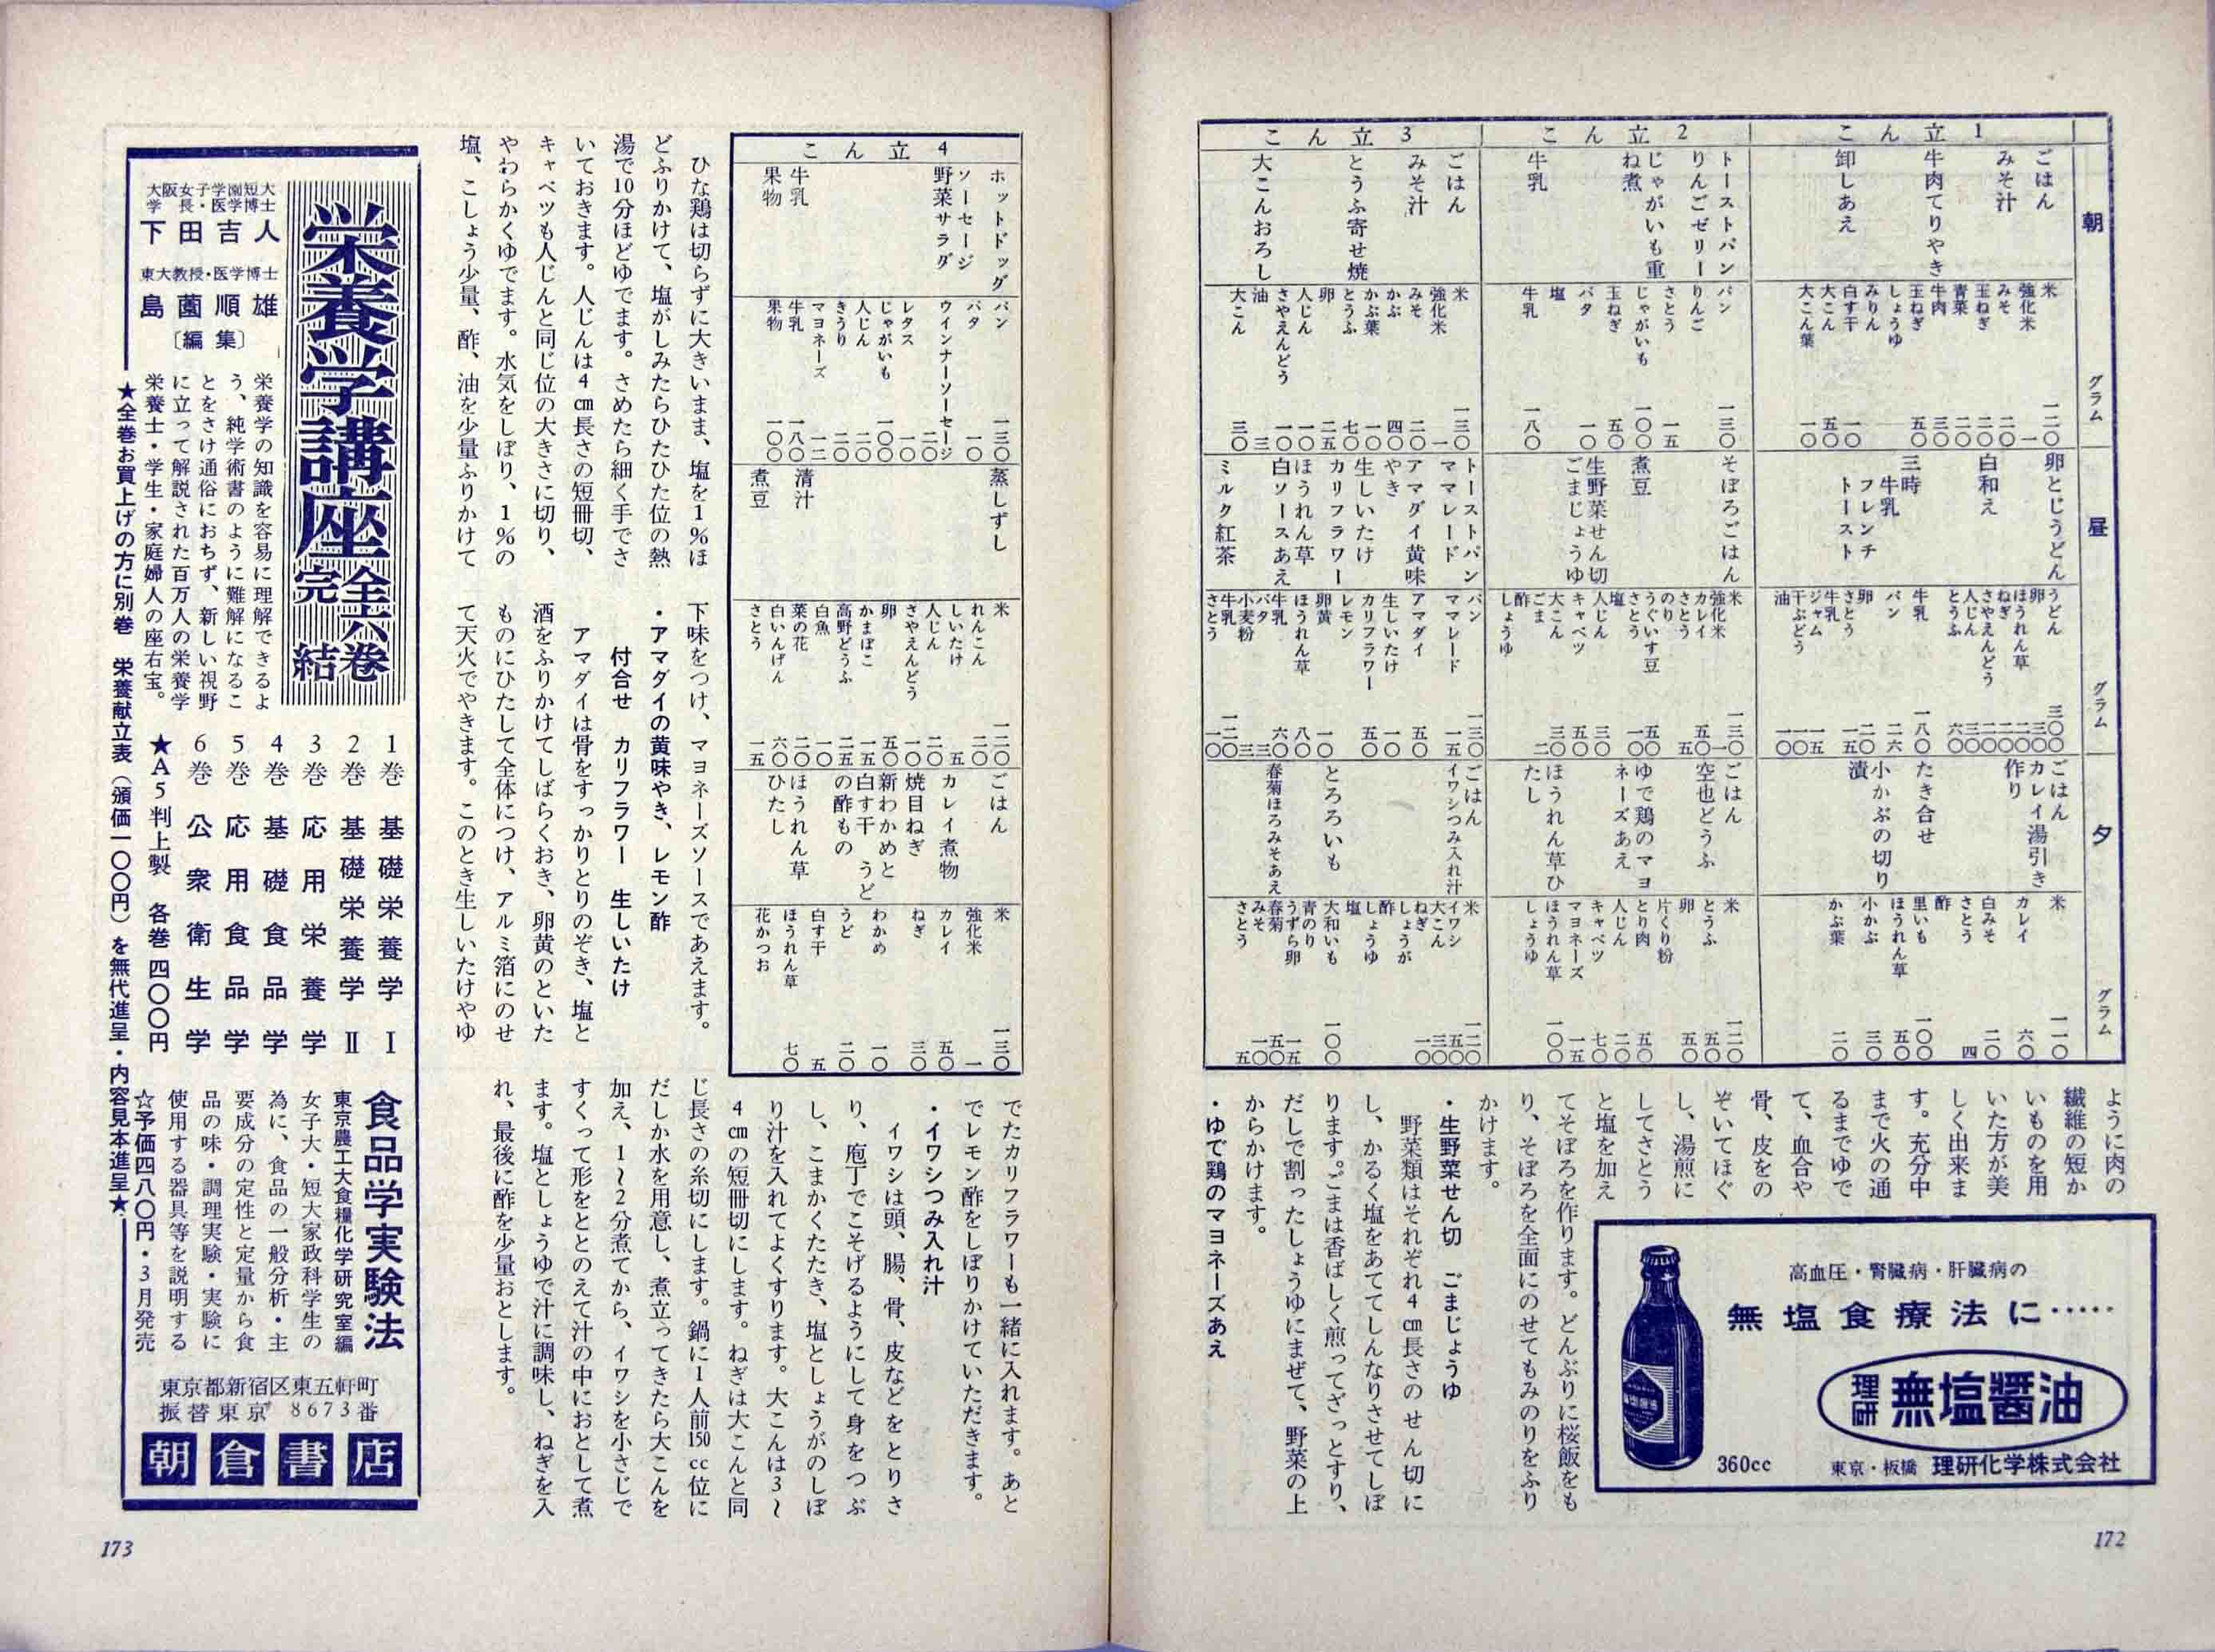 1 立 ん こ
朝
ごはん
みそ汁
牛肉てりやき
卸しあえ
グラム
米 一二〇
強化米 一
みそ 二〇
玉ねぎ 二〇
青菜 二〇
牛肉 三〇
玉ねぎ 五〇
しょうゆ
みりん
白す干 一〇
大こん 五〇
大こん葉 一〇
昼
卵とじうどん
白和え
三時
牛乳
フレンチ
トースト
グラム
うどん 三〇〇
卵
ほうれん草
ねぎ
さやえんどう
人じん
とうふ 六〇
牛乳 一八〇
パン 二六
卵 二〇
さとう
牛乳
ジャム
干ぶどう
油
夕
ごはん
カレイ湯引き
作り
たき合せ
小かぶの切り
漬
グラム
米 一一〇
カレイ 六〇
白みそ 二〇
さとう 四
酢
里いも 一〇〇
ほうれん草 五〇
小かぶ 三〇
かぶ葉 二〇
2 立 ん こ
トーストパン
りんごゼリー
じゃがいも重
ね煮
牛乳
パン 一三〇
りんご
さとう 一五
じゃがいも 一〇〇
玉ねぎ 五〇
バタ 一〇
塩
牛乳 一八〇
そぼろごはん
煮豆
生野菜せん切
ごまじょうゆ
米 一三〇
強化米 一
カレイ 五〇
さとう 五
のり
うぐいす豆 五〇
さとう 一〇
塩
人じん 三〇
キャベツ 五〇
大こん 三〇
ごま 二
酢
しょうゆ
ごはん
空也どうふ
ゆで鶏のマヨ
ネーズあえ
ほうれん草ひ
たし
米 一二〇
とうふ 五〇
卵 五〇
片くり粉
とり肉 五〇
人じん 二〇
キャベツ 七〇
マヨネーズ 一五
ほうれん草 一〇〇
しょうゆ
3 立 ん こ
ごはん
みそ汁
とうふ寄せ焼
大こんおろし
米 一三〇
強化米 一
みそ 二〇
かぶ 四〇
かぶ葉 一〇
とうふ 七〇
卵 二五
人じん 一〇
さやえんどう 一〇
油 三
大こん 三〇
トーストパン
ママレード
アマダイ黄味
やき
生しいたけ
カリフラワー
ほうれん草
白ソースあえ
ミルク紅茶
パン 一三〇
ママレード 一五
アマダイ 五〇
生しいたけ 一〇
カリフラワー 五〇
レモン
卵黄 一〇
ほうれん草 八〇
牛乳 六〇
バタ 三
小麦粉 三
牛乳 一二〇
さとう 一〇
ごはん
イワシつみ入れ汁
とろろいも
春菊ほろみそあえ
米 一二〇
イワシ 五〇
大こん 三〇
ねぎ 一〇
しょうが
酢
しょうゆ
塩
大和いも 一〇〇
青のり
うずら卵 一五
春菊 五〇
みそ 一〇
さとう 五
ように肉の
繊維の短か
いものを用
いた方が美
しく出来ま
す。充分中
まで火の通
るまでゆで
て、血合や
骨、皮をの
ぞいてほぐ
し、湯煎に
してさとう
と塩を加え
てそぼろを作ります。どんぶりに桜飯をも
り、そぼろを全面にのせてもみのりをふり
かけます。
・生野菜せん切 ごまじょうゆ
野菜類はそれぞれ4㎝長さのせん切に
し、かるく塩をあててしんなりさせてしぼ
ります。ごまは香ばしく煎ってざっとすり、
だしで割ったしょうゆにまぜて、野菜の上
からかけます。
・ゆで鶏のマヨネーズあえ
高血圧・腎臓病・肝臓病の
無塩食療法に……
理研 無塩醤油
360cc
東京・板橋 理研化学株式会社
172
4 立 ん こ
ホットドッグ
ソーセージ
野菜サラダ
牛乳
果物
パン 一三〇
バタ 一〇
ウインナーソーセージ 二〇
レタス 一〇
じゃがいも 一〇〇
人じん 二〇
きうり 二〇
マヨネーズ 一二
牛乳 一八〇
果物 一〇〇
蒸しずし
清汁
煮豆
米 一二〇
れんこん 二〇
しいたけ 五
人じん 二〇
さやえんどう 一〇
卵 五〇
かまぼこ 一五
高野どうふ 二五
白魚 一〇
菜の花 二〇
白いんげん 六〇
さとう 一五
ごはん
カレイ煮物
焼目ねぎ
新わかめと
白す干 うど
の酢もの
ほうれん草
ひたし
米 一三〇
強化米 一
カレイ 五〇
ねぎ 三〇
わかめ 一〇
うど 二〇
白す干 五
ほうれん草 七〇
花かつお
ひな鶏は切らずに大きいまま、塩を1％ほ
どふりかけて、塩がしみたらひたひた位の熱
湯で10分ほどゆでます。さめたら細く手でさ
いておきます。人じんは4㎝長さの短冊切、
キャベツも人じんと同じ位の大きさに切り、
やわらかくゆでます。水気をしぼり、1％の
塩、こしょう少量、酢、油を少量ふりかけて
下味をつけ、マヨネーズソースであえます。
・アマダイの黄味やき、レモン酢
付合せ カリフラワー 生しいたけ
アマダイは骨をすっかりとりのぞき、塩と
酒をふりかけてしばらくおき、卵黄のといた
ものにひたして全体につけ、アルミ箔にのせ
て天火でやきます。このとき生しいたけやゆ
でたカリフラワーも一緒に入れます。あと
でレモン酢をしぼりかけていただきます。
・イワシつみ入れ汁
イワシは頭、腸、骨、皮などをとりさ
り、庖丁でこそげるようにして身をつぶ
し、こまかくたたき、塩としょうがのしぼ
り汁を入れてよくすります。大こんは3〜
4㎝の短冊切にします。ねぎは大こんと同
じ長さの糸切にします。鍋に1人前150cc位に
だしか水を用意し、煮立ってきたら大こんを
加え、1〜2分煮てから、イワシを小さじで
すくって形をととのえて汁の中におとして煮
ます。塩としょうゆで汁に調味し、ねぎを入
れ、最後に酢を少量おとします。
栄養学講座 全六巻 完結
大阪女子学園短大
学長・医学博士
下田吉人
東大教授・医学博士
島薗順雄
〔編集〕
栄養学の知識を容易に理解できるよ
う、純学術書のように難解になるこ
とをさけ通俗におちず、新しい視野
に立って解説された百万人の栄養学
栄養士・学生・家庭婦人の座右宝。
1巻 基礎栄養学 Ⅰ
2巻 基礎栄養学 Ⅱ
3巻 応用栄養学
4巻 基礎食品学
5巻 応用食品学
6巻 公衆衛生学
★A5判上製 各巻 四〇〇円
★全巻お買上げの方に別巻 栄養献立表（頒価一〇〇円）を無代進呈・内容見本進呈★
食品学実験法
東京農工大食糧化学研究室編
女子大・短大家政科学生の
為に、食品の一般分析・主
要成分の定性と定量から食
品の味・調理実験・実験に
使用する器具等を説明する
☆予価四八〇円・3月発売
東京都新宿区東五軒町
振替東京 8673番
朝倉書店
173